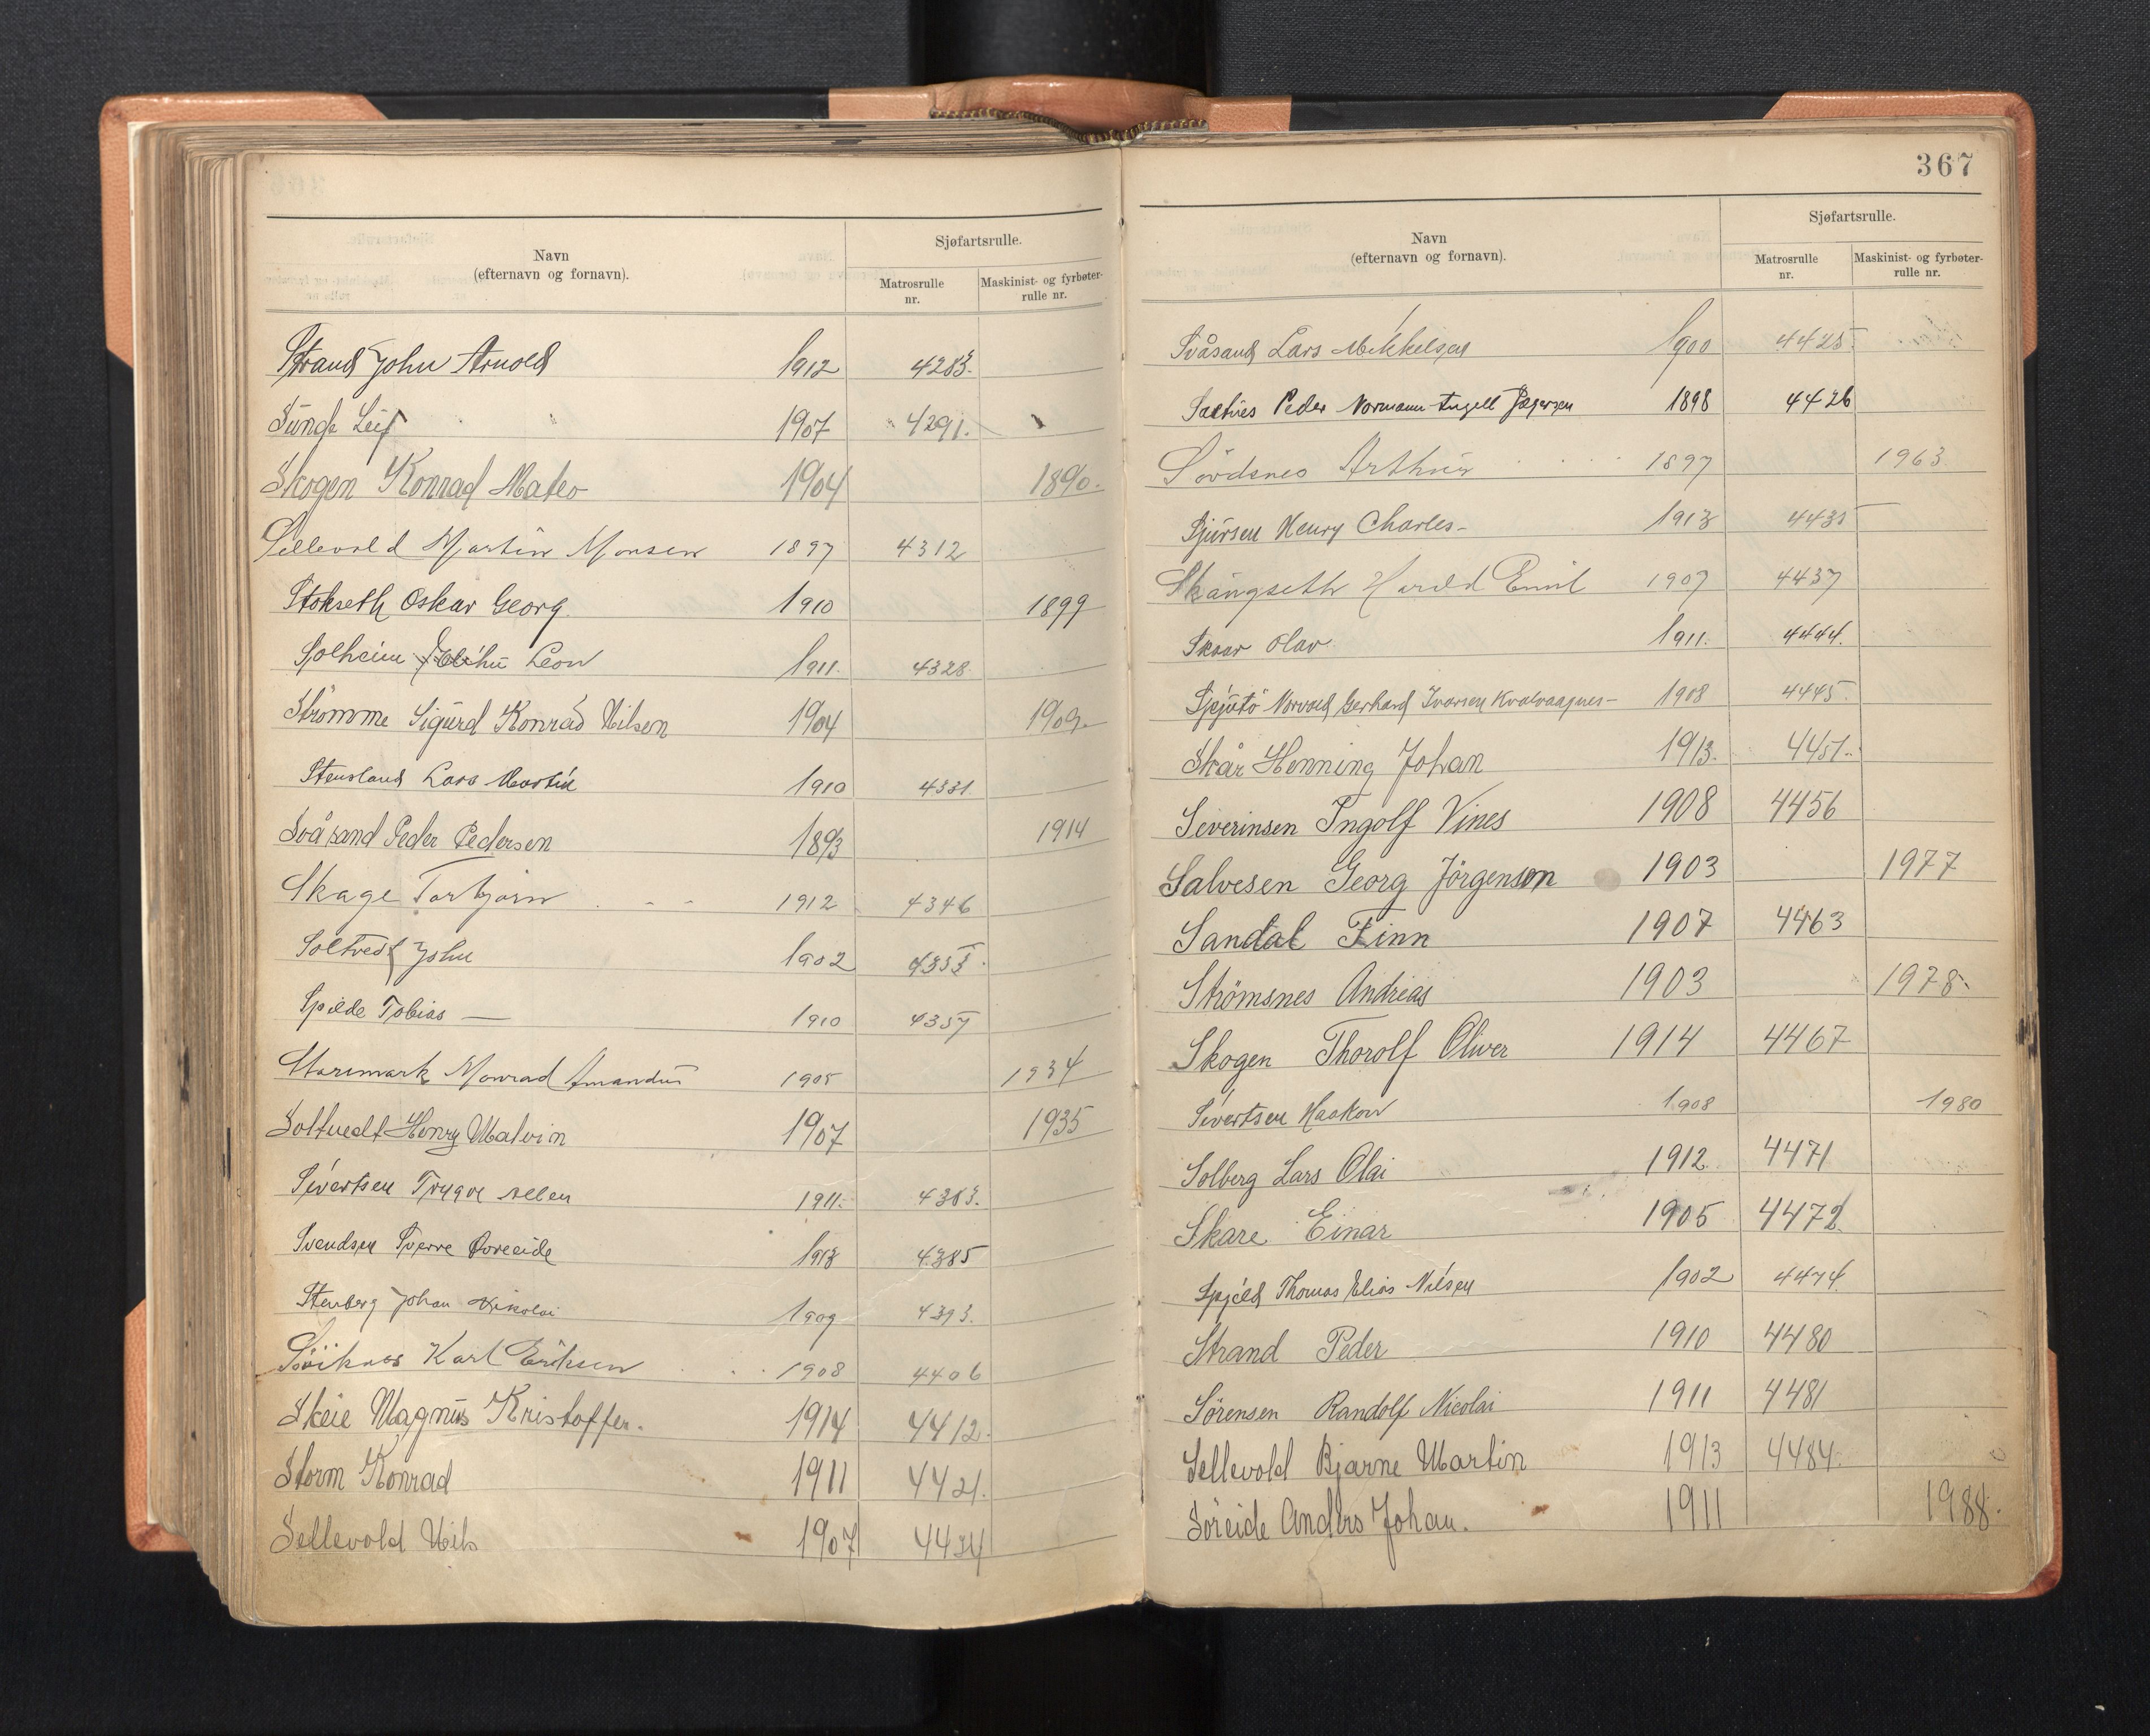 Navn
(efternavn og fornavn).
Sjøfartsrulle.
Matrosrulle
nr.
Maskinist- og fyrbøter-
rulle nr.
Strand John Arnold 1912 4283.
Sunde Leif 1907 4291.
Skogen Konrad Mateo 1904 1890.
Sellevold Martin Monsen 1897 4312
Stokseth Oskar Georg. 1910 1899
Solheim Leon 1911. 4328.
Strømme Sigurd Konrad Nilsen 1904 1909.
Stensland Lars Martin 1910 4331.
Svåsand Peder Pedersen 1893 1914
Skage Torbjørn 1912 4346
Soltvedt John 1902
Spilde Tobias — 1910 4357
Staremark Monrad Amandus 1905 1934
Soltvedt Henry Malvin 1907 1935
Sivertsen Trygve 1911. 4383.
Svendsen Sverre Øvreeide 1913 4385
Stenberg Johan Nikolai 1909 4393.
Söiknes Karl Eriksen 1908 4406
Skeie Magnus Kristoffer. 1914 4412.
Storm Konrad 1911 4421.
Sellevold Nils 1907 4424
367
Navn
(efternavn og fornavn).
Sjøfartsrulle.
Matrosrulle
nr.
Maskinist- og fyrbøter-
rulle nr.
Svåsand Lars Mikkelsen 1900 4425.
Peder Normann 1898 4426
Sördsnes Arthur 1897 1963
Sjursen Henry Charles- 1913 4435
Skångseth Harald Emil 1907 4437
Skaar Olav 1911. 4444.
Norvald Gerhard Ivarsen Kvalvaagnes- 1908 4445.
Skår Henning Johan 1913. 4451.
Severinsen Ingolf Vines 1908 4456
Salvesen Georg Jörgenson 1903 1977
Sandal Finn 1907 4463
Strömsnes Andreas 1903 1978.
Skogen Thorolf Oliver 1914 4467
Sivertsen Haakon 1908 1980
Solberg Lars Olai 1912. 4471
Skare Einar 1905 4472.
Spjeld Thomas Elias Nilsen 1902 4474.
Strand Peder 1910 4480
Sørensen Randolf Nicolai 1911 4481
Sellevold Bjarne Martin 1913 4484.
Söreide Anders Johan. 1911 1988.